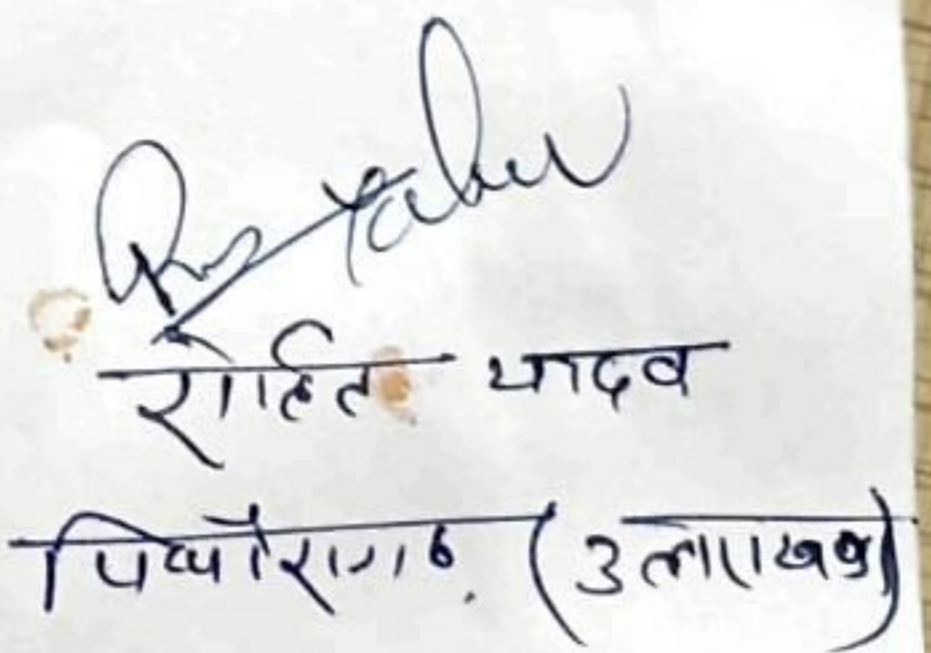 R Yadav
रोहित यादव
पिथौरागढ़ (उत्तराखण्ड)